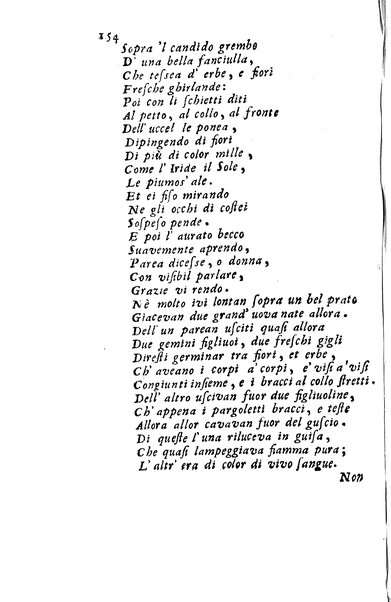 154
Sopra 'l candido grembo
D' una bella fanciulla,
Che teſsea d' erbe, e fiori
Freſche ghirlande:
Poi con li ſchietti diti
Al petto, al collo, al fronte
Dell' uccel le ponea,
Dipingendo di fiori
Di più di color mille,
Come l' Iride il Sole,
Le piumoſ' ale.
Et ei fiſo mirando
Ne gli occhi di coſtei
Soſpeſo pende.
E poi l' aurato becco
Suavemente aprendo,
Parea diceſse, o donna,
Con viſibil parlare,
Grazie vi rendo.
Nè molto ivi lontan ſopra un bel prato
Giacevan due grand' uova nate allora.
Dell' un parean uſciti quaſi allora
Due gemini figliuoi, due freſchi gigli
Direſti germinar tra fiori, et erbe,
Ch' aveano i corpi a' corpi, e' viſi a' viſi
Congiunti inſieme, e i bracci al collo ſtretti.
Dell' altro uſcivan fuor due figliuoline,
Ch' appena i pargoletti bracci, e teſte
Allora allor cavavan fuor del guſcio.
Di queſte l' una riluceva in guiſa,
Che quaſi lampeggiava fiamma pura;
L' altr' era di color di vivo ſangue.
Non